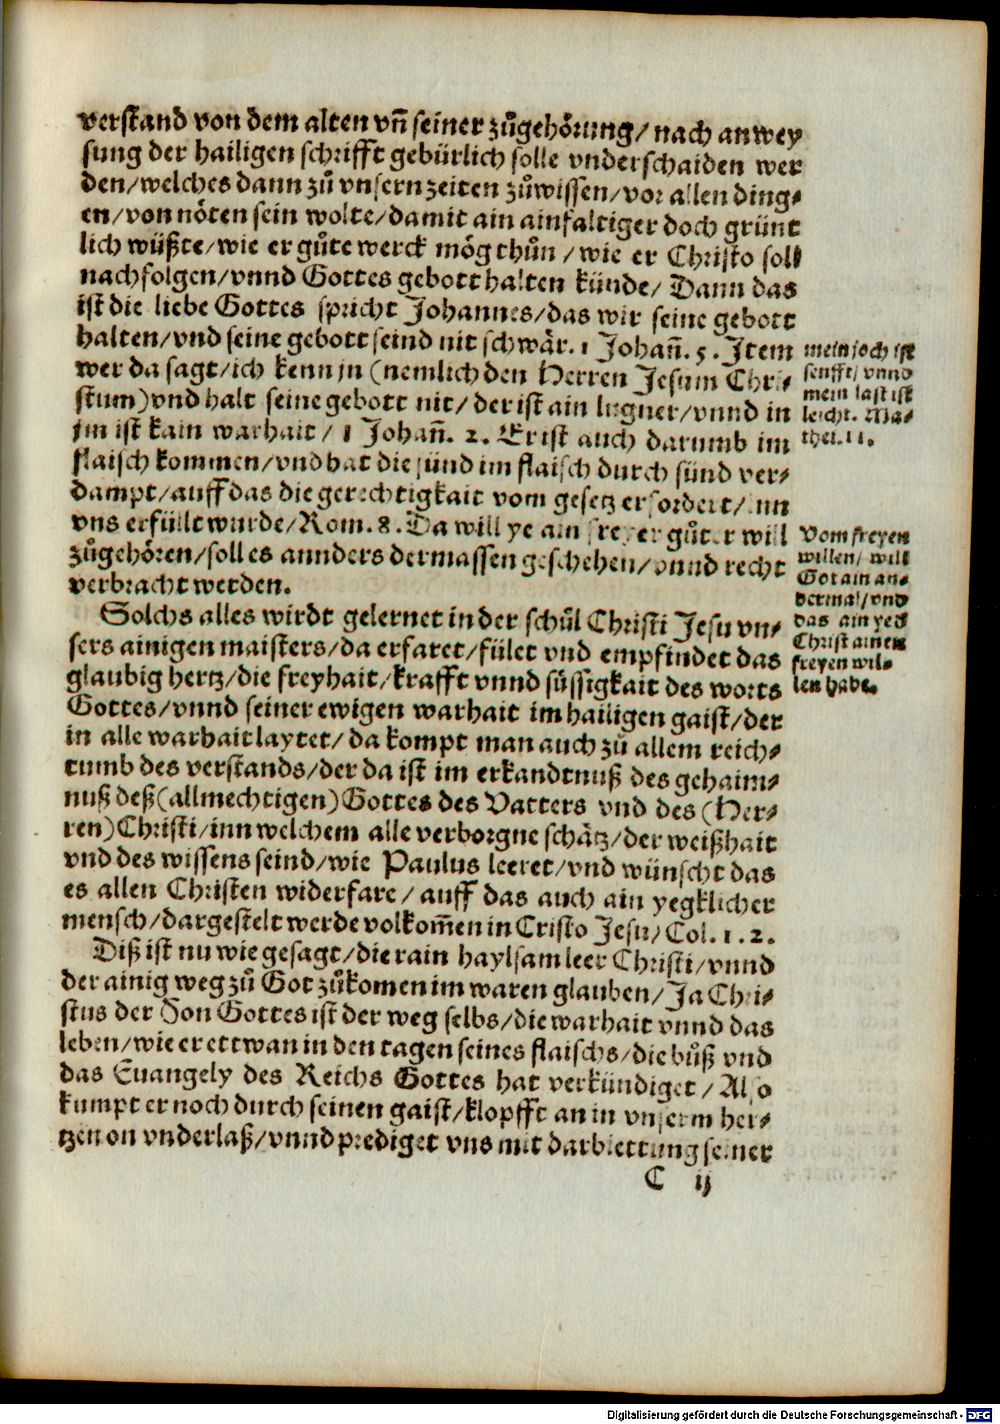 verstand von dem alten vñ seiner zůgehörung/ nach anwey
sung der hailigen schrifft gebürlich solle vnderschaiden wer
den/welches dann zů vnsern zeiten zůwissen/vor allen ding⸗
en/von nöten sein wolte/damit ain ainfaltiger doch grünt
lich wüßte/wie er gůte werck mög thůn/wie er Christo soll
nachfolgen/vnnd Gottes gebott halten künde/ Dann das
ist die liebe Gottes spricht Johannes/das wir seine gebott
halten/vnd seine gebott seind nit schwär. 1 Johañ. 5. Item
wer da sagt/ich kenn jn (nemlich den Herren Jesum Chri⸗
stum) vnd halt seine gebott nit/ der ist ain lugner/vnnd in
jm ist kain warhait/ 1 Johañ. 2. Er ist auch darumb im
flaisch kommen/vnd hat die sünd im flaisch durch sünd ver⸗
dampt/auff das die gerechtigkait vom gesetz erfordert/inn
vns erfüllt wurde/Rom. 8. Da will ye ain freyer gůter will
zůgehören/soll es annders dermassen geschehen/vnnd recht
verbracht werden.
mein joch ist
senfft/ vnnd
mein last ist
leicht. Ma⸗
thei. 11.
Vom freyen
willen/ will
Got ain an⸗
dermal/vnd
das ain yed
Christ ainen
freyen wil⸗
len habe.
Solchs alles wirdt gelernet in der schůl Christi Jesu vn⸗
sers ainigen maisters/da erfaret/fület vnd empfindet das
glaubig hertz/die freyhait/krafft vnnd süssigkait des worts
Gottes/vnnd seiner ewigen warhait im hailigen gaist/der
in alle warhait laytet/da kompt man auch zů allem reich⸗
tumb des verstands/der da ist im erkandtnuß des gehaim⸗
nuß deß (allmechtigen) Gottes des Vatters vnd des (Her⸗
ren) Christi/inn welchem alle verborgne schätz/der weißhait
vnd des wissens seind/wie Paulus leeret/vnd wünscht das
es allen Christen widerfare/ auff das auch ain yegklicher
mensch/dargestelt werde volkom̃en in Cristo Jesu/Col. 1. 2.
Diß ist nu wie gesagt/die rain haylsam leer Christi/vnnd
der ainig weg zů Got zůkomen im waren glauben/Ja Chri⸗
stus der Son Gottes ist der weg selbs/die warhait vnnd das
leben/wie er ettwan in den tagen seines flaischs/die bůß vnd
das Euangely des Reichs Gottes hat verkündiget/Also
kumpt er noch durch seinen gaist/klopfft an in vnserm her⸗
tzen on vnderlaß/vnnd prediget vns mit darbiettung seiner
C ij
Digitalisierung gefördert durch die Deutsche Forschungsgemeinschaft - DFG